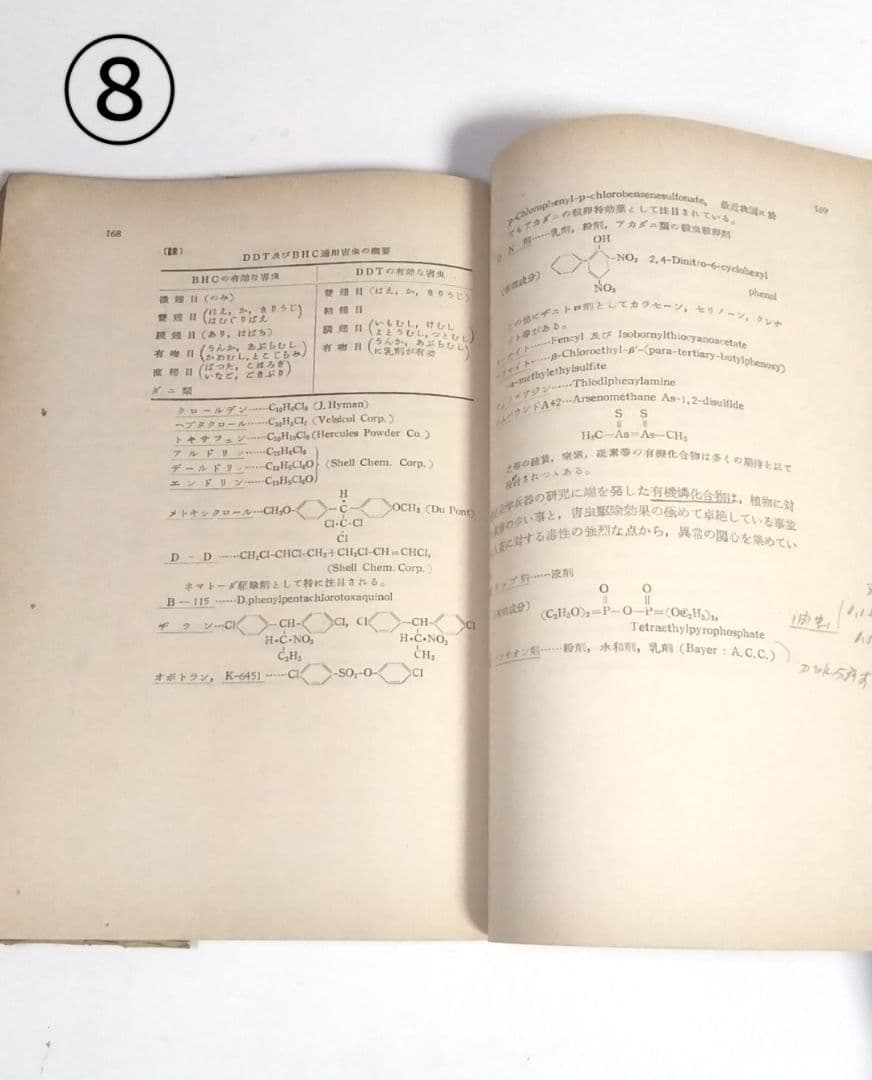 ⑧
168
DDT及びBHC適用害虫の概要
BHCの有効な害虫
DDTの有効な害虫
微翅目(のみ)
雙翅目(はえ,か,きりうじ はむぐりばえ)
膜翅目(あり,はばち)
有吻目(うんか,あぶらむし かめむし,とこじらみ)
直翅目(ばつた,こほろぎ いなご,ごきぶり)
ダニ類
雙翅目(はえ,か,きりうじ)
鞘翅目
鱗翅目(いもむし,けむし よとうむし,つとむし)
有吻目(うんか,あぶらむし に乳剤が有効)
クロールデン……C₁₀H₆Cl₈ (J. Hyman)
ヘプタクロール……C₁₀H₅Cl₇ (Velsicol Corp.)
トキサフェン……C₁₀H₁₀Cl₈ (Hercules Powder Co.)
アルドリン……C₁₂H₈Cl₆
デールドリン……C₁₂H₈Cl₆O (Shell Chem. Corp.)
エンドリン……C₁₂H₈Cl₆O
H
メトキシクロール…CH₃O- -C- OCH₃ (Du Pont)
Cl·C·Cl
Cl
D-D……CH₂Cl-CHCl-CH₃+CH₂Cl-CH=CHCl,
(Shell Chem. Corp.)
ネマトーダ駆除剤として特に注目される。
B—115……D.phenylpentachlorotoxaquinol
ヂラン…Cl -CH- Cl, Cl -CH- Cl
H·C·NO₂ H·C·NO₂
C₂H₅ CH₃
オボトラン, K-6451……Cl -SO₂-O- Cl
169
p-Chlorophenyl-p-chlorobensenesulfonate, 最近我国に於
てもアカダニの殺卵特効薬として注目されている。
D N 剤……乳剤,粉剤,アカダニ類の殺虫殺卵剤
OH
(有効成分) -NO₂ 2,4-Dinitro-6-cyclohexyl
NO₂ phenol
の他にヂニトロ剤としてカラセーン,セリノーン,クレヂ
イト等がある。
ナイト……Fencyl 及び Isobornylthiocyanoacetate
マイト……β-Chloroethyl-β'-(para-tertiary-butylphenoxy)
-α-methylethylsulfite
アジン……Thiodiphenylamine
ウンドA42…Arsenomethane As-1,2-disulfide
S S
H₃C—As=As—CH₃
等の硫黄,窒素,砒素等の有機化合物は多くの期待を以て
検討されつゝある。
学兵器の研究に端を発した有機燐化合物は,植物に対
の少い事と,害虫駆除効果の極めて卓絶している事並
に対する毒性の強烈な点から,異常の関心を集めてい
ップ剤……液剤
O O
(有効成分) (C₂H₅O)₂=P—O—P=(OC₂H₅)₂,
Tetraethylpyrophosphate
チオン剤……粉剤,水和剤,乳剤 (Bayer : A.C.C.)